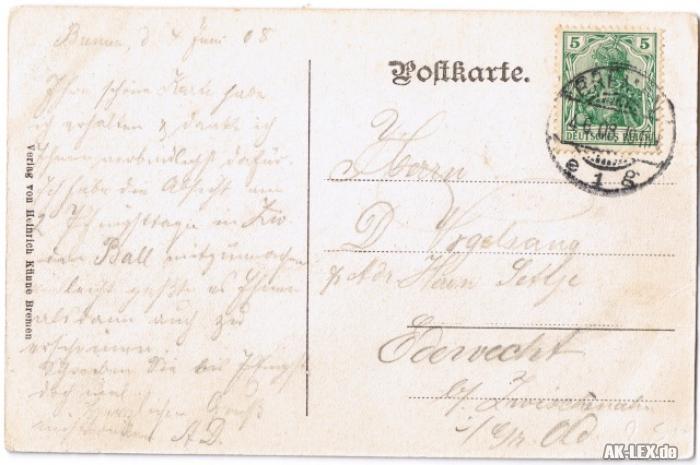 Bremen, d 4 Juni 08
Ihre schöne Karte habe
ich erhalten & dankte ich
Ihnen verbindlichst dafür.
Ich habe die Absicht am
2 Pfingsttage in
den Ball mitzumachen
vielleicht paßte es Ihnen
alsdann auch zu
erscheinen.
Schreiben Sie bei Pfingst
doch mal.
Herzlichen Gruß
A.D.
Verlag von Heinrich Künne Bremen
Postkarte.
5 5
DEUTSCHES REICH
e 1 g
Herrn
D Vogelsang
p Adr Herrn Setje
Edewecht
b/ Zwischenahn
i/ Gr. Old
AK-LEX.de